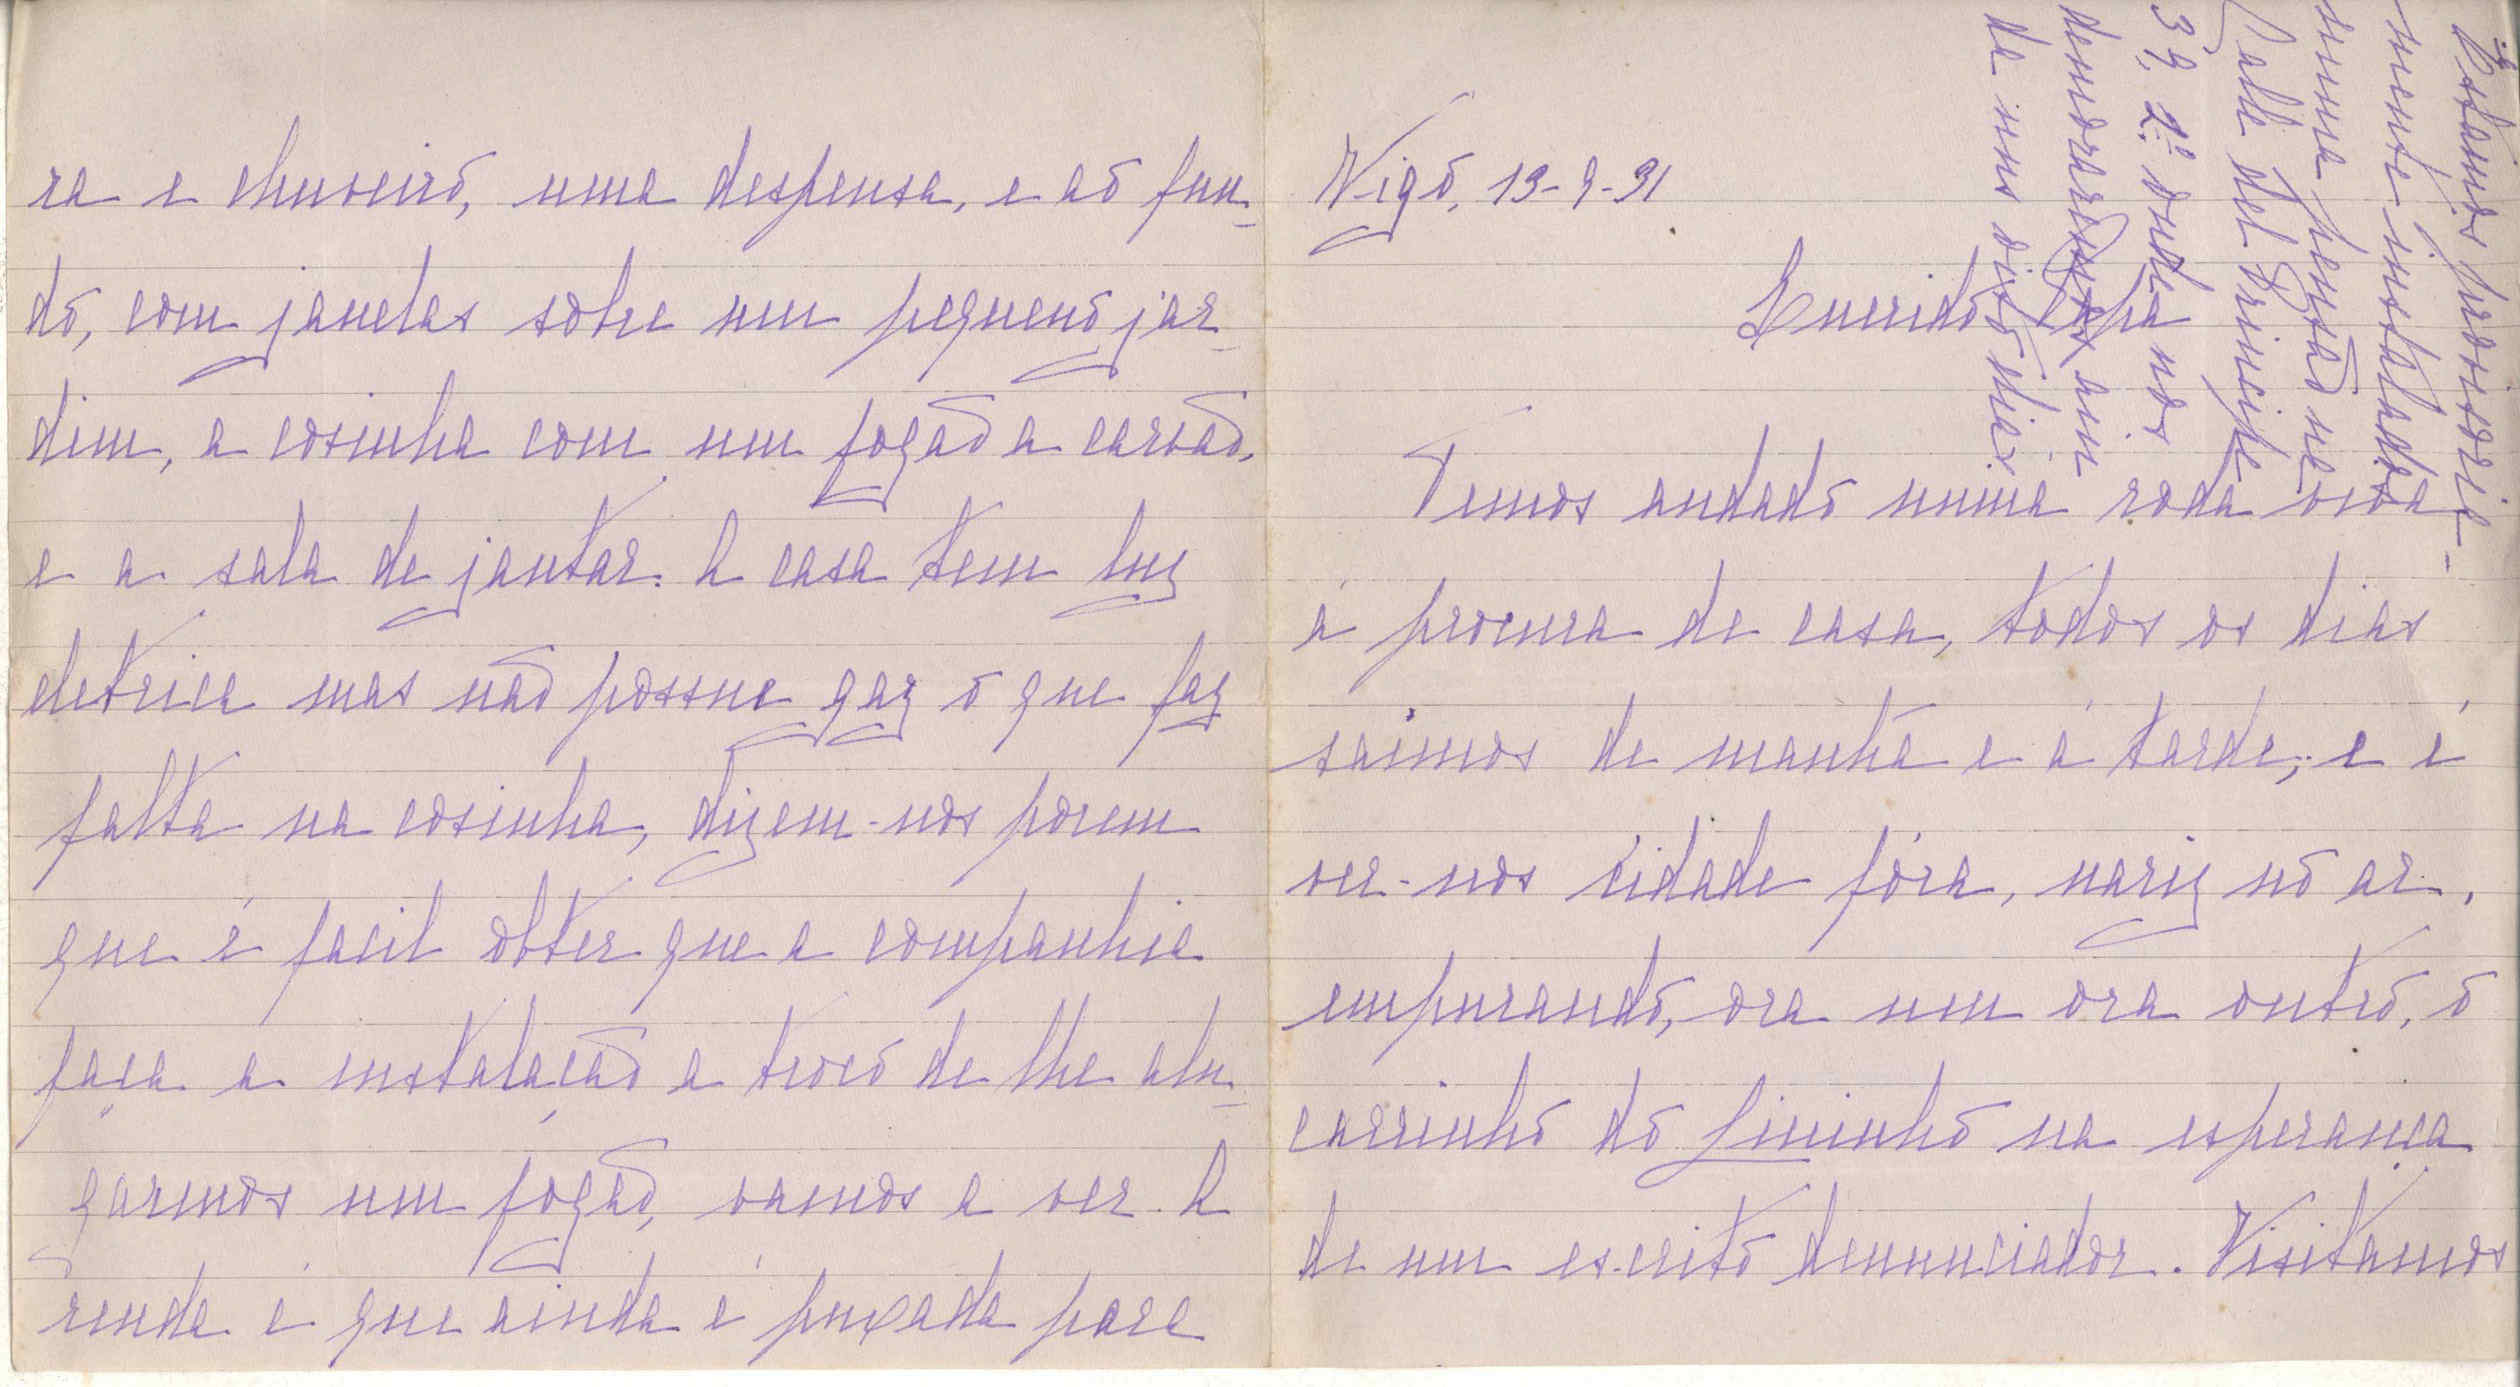 ra e chuveiro, uma despensa, e ao fun-
do, com janelas sobre um pequeno jar-
dim, a cosinha com um fogão a carvão,
e a sala de jantar. A casa tem luz
eletrica mas não possue gaz o que faz
falta na cosinha, dizem-nos porem
que é facil obter que a companhia
faça a instalação a troco de lhe alu-
garmos um fogão, vamos a ver. A
renda é que ainda é puxada para
Vigo, 13-9-31
Querido Papa
Temos andado numa roda viva
á procura de casa, todos os dias
saimos de manhã e á tarde, e é
ver-nos cidade fóra, nariz no ar,
empurando, ora um ora outro, o
carrinho do Lininho na esperança
de um escrito denunciador. Visitamos
Estamos provisoria-
mente instalados
numa pensão na
Calle del Principe
39, 2º onde nos
demoraremos ain
da uns oito dias